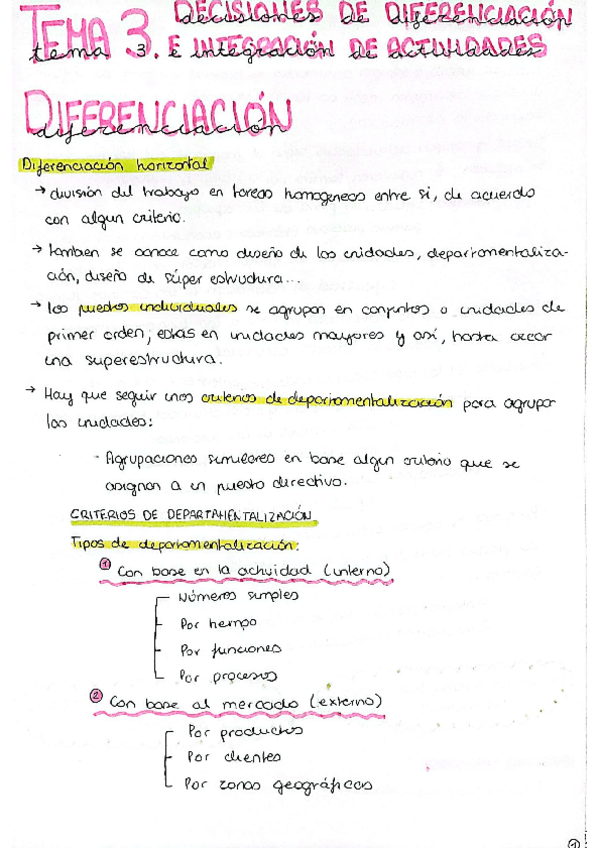 TEMA 3. DECISIONES DE DIFERENCIACIÓN
tema 3. E INTEGRACIÓN DE ACTIVIDADES
DIFERENCIACIÓN
diferenciación
Diferenciación horizontal
→ división del trabajo en tareas homogeneas entre si, de acuerdo
con algun criterio.
→ tambien se conoce como diseño de las unidades, departamentaliza-
ción, diseño de súper estructura...
→ los puestos individuales se agrupan en conjuntos o unidades de
primer orden; estas en unidades mayores y así, hasta crear
una superestructura.
→ Hay que seguir unos criterios de departamentalización para agrupar
las unidades:
- Agrupaciones similares en base algun criterio que se
asignan a un puesto directivo.
CRITERIOS DE DEPARTAMENTALIZACIÓN
Tipos de departamentalización:
1 Con base en la actividad (interno)
Números simples
Por tiempo
Por funciones
Por procesos
2 Con base al mercado (externo)
Por productos
Por clientes
Por zonas geográficas
1